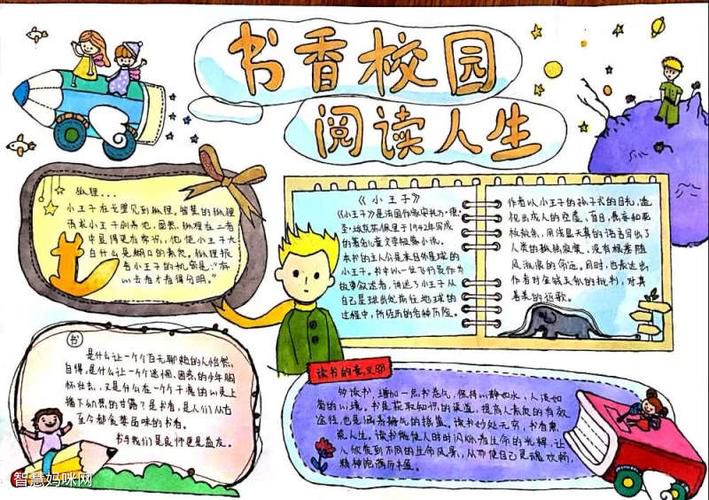 书香校园
阅读人生
狐狸...
小王子在花墅见到狐狸。智慧的狐狸
请求小王子驯养他。固然，狐狸在二者
中显得更有学识，他使小王子大
白什么是糊口的素质。狐狸报
告小王子的机密是：“存
心去看才看得分明。”
《小王子》
《小王子》是法国作家安托万·德·
圣·埃克苏佩里于1942年写成
的著名儿童文学短篇小说。
本书的主人公是来自外星球的
小王子。书中以一位飞行员作为
故事叙述者，讲述了小王子从
自己星球出发前往地球的
过程中，所经历的各种历险。
作者以小王子的孩子式的目光，透
视出成人的空虚、盲目，愚妄和死
板教条，用浅显天真的语言写出了
人类的孤独寂寞、没有根基随
风流浪的命运。同时，也表达出
作者对金钱关系的批判，对真
善美的讴歌。
书
是什么让一个个百无聊赖的人怡然
自得，是什么让一个个迷惘、困惑的少年胸
怀壮志，又是什么在一个个干涸的心灵上
播下幼苗的甘露？是书籍，是人们从古
至今都金樽品味的书。
书与我们是良师更是益友。
读书的意义
多读书，增加一点书卷气，保持心静如水、人淡如
菊的心境。书是获取知识的渠道，提高人素质的有效
途径，也是涵养静气的摇篮。读书妙处无穷，书香熏
染人生。读书撒使人的时闪烁着生命的光辉，让
人欣赏到不同的生命风景，从而使自己灵魂欢畅，
精神饱满而丰盈。
智慧妈咪网